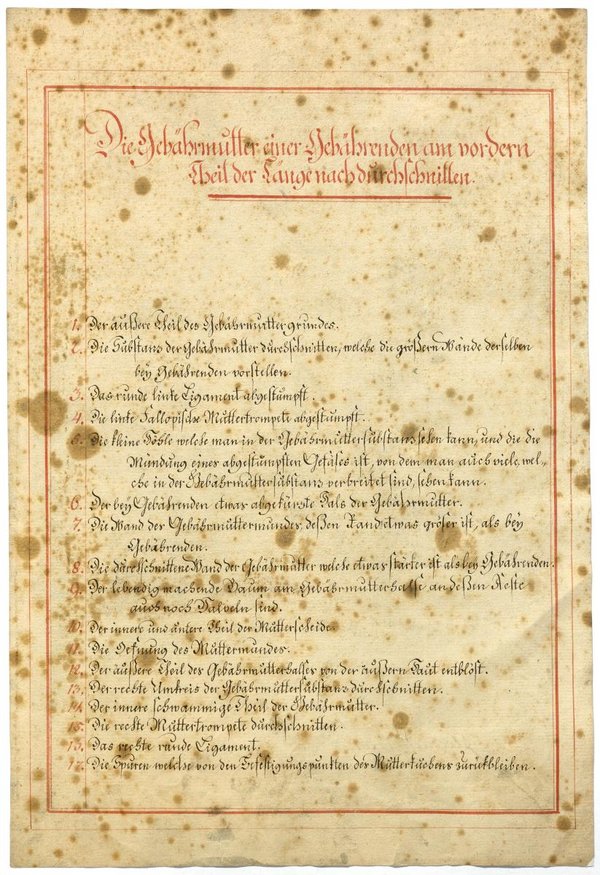 Die Gebährmutter einer Gebährenden am vordern
Theil der Länge nach durchschnitten.
1. Der äußere Theil des Gebährmuttergrundes.
2. Die Substanz der Gebährmutter durchschnitten, welche die größern Wände derselben
bey Gebährenden vorstellen.
3. Das runde linke Ligament abgestumpft.
4. Die linke Fallopische Muttertrompete abgestumpft.
5. Die kleine Höhle welche man in der Gebährmuttersubstanz sehen kann, und die die
Mündung eines abgestumpften Gefäses ist, von dem man auch viele, wel-
che in der Gebährmuttersubstanz verbreitet sind, sehen kann.
6. Der bey Gebährenden etwas abgekürzte Hals der Gebährmutter.
7. Die Wand der Gebährmuttermundes, deßen Rand etwas gröser ist, als bey
Gebährenden.
8. Die durchschnittene Wand der Gebährmutter welche etwas stärker ist als bey Gebährenden.
9. Der lebendig machende Baum am Gebährmutterhalse an deßen Aeste
auch noch Valveln sind.
10. Der innere und untere Theil der Mutterscheide.
11. Die Oefnung des Muttermundes.
12. Der äußere Theil des Gebährmutterhalses von der äußern Haut entblöst.
13. Der rechte Umkreis der Gebährmuttersubstanz durchschnitten.
14. Der innere schwammige Theil der Gebährmutter.
15. Die rechte Muttertrompete durchschnitten.
16. Das rechte runde Ligament.
17. Die Spuren welche von den Befestigungspunkten des Mutterkuchens zurückbleiben.